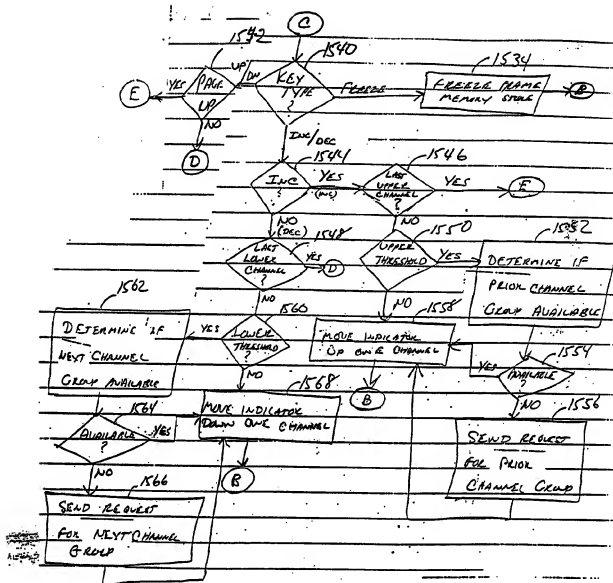 C
1542
1540
1534
UP/
DN
PAGE
UP
YES
E
KEY
TYPE
?
FREEZE
FREEZE FRAME
MEMORY STORE
B
NO
D
INC/DEC
1544
1546
INC
?
YES
(INC)
LAST
UPPER
CHANNEL
?
YES
E
NO
(DEC)
1548
NO
1550
1552
LAST
LOWER
CHANNEL
?
YES
D
UPPER
THRESHOLD
YES
DETERMINE IF
PRIOR CHANNEL
GROUP AVAILABLE
1562
NO
1560
NO
1558
DETERMINE IF
NEXT CHANNEL
GROUP AVAILABLE
YES
LOWER
THRESHOLD
?
MOVE INDICATOR
UP ONE CHANNEL
1554
YES
AVAILABLE
?
NO
1568
B
NO
1556
1564
AVAILABLE
?
YES
MOVE INDICATOR
DOWN ONE CHANNEL
SEND REQUEST
FOR PRIOR
CHANNEL GROUP
NO
1566
B
SEND REQUEST
FOR NEXT CHANNEL
GROUP